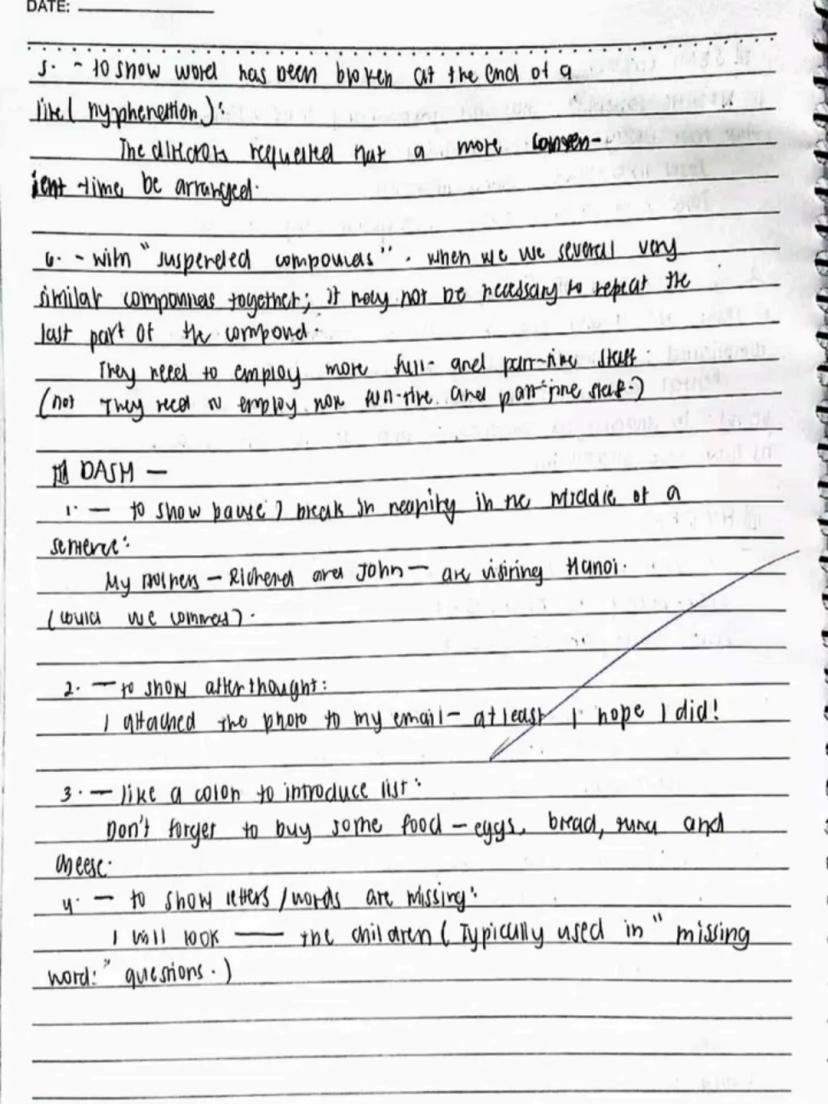 DATE:
5. - to show word has been broken at the end of a
line (hyphenation):
The directors requested that a more conven-
ient time be arranged.
6. - with "suspended compounds". when we we several very
similar compounds together; it may not be necessary to repeat the
last part of the compound.
They need to employ more full- and part-time staff
(not They need to employ more full-time and part-time staff.)
DASH —
1. — to show pause / break in meaning in the middle of a
sentence:
My brothers — Richard and John — are visiting Hanoi.
(could use commas).
2. — to show afterthought:
I attached the photo to my email — at least I hope I did!
3. — like a colon to introduce list:
Don't forget to buy some food — eggs, bread, tuna and
cheese.
4. — to show letters / words are missing:
I will look —— the children (Typically used in "missing
word:" questions.)